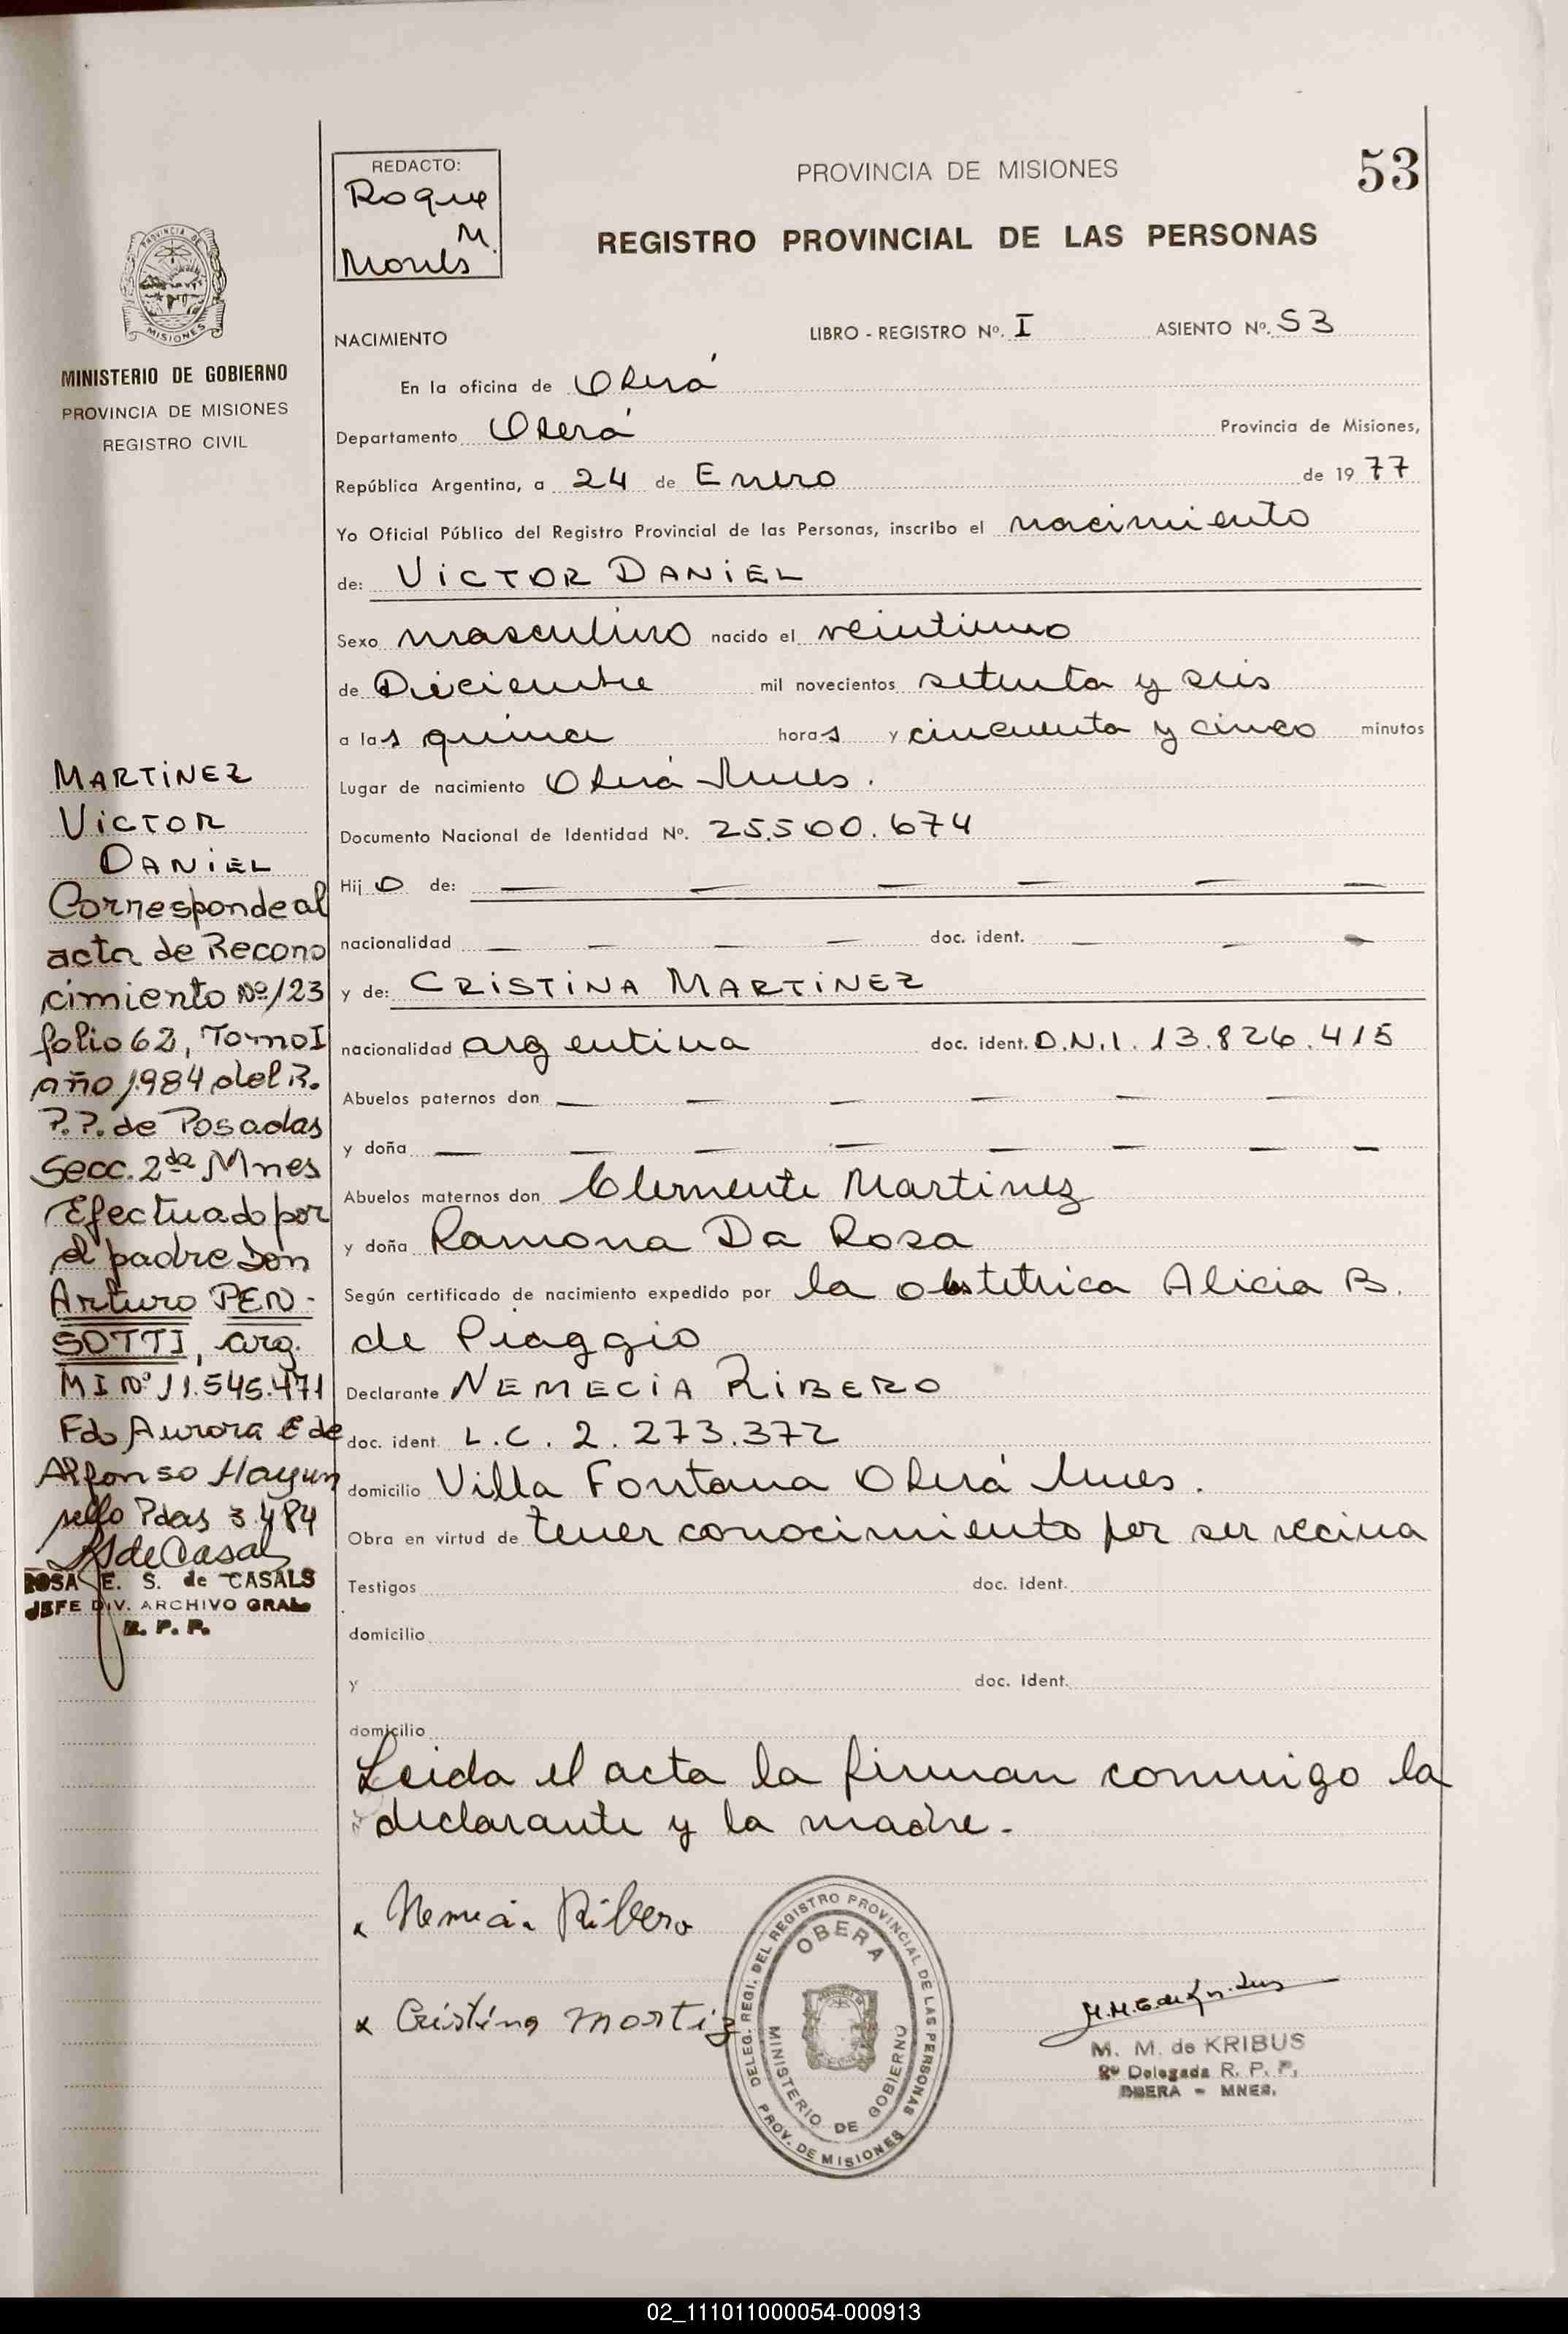 REDACTO:
Roque
M.
PROVINCIA DE MISIONES
53
REGISTRO PROVINCIAL DE LAS PERSONAS
PROVINCIA DE
MISIONES
MINISTERIO DE GOBIERNO
PROVINCIA DE MISIONES
REGISTRO CIVIL
NACIMIENTO LIBRO - REGISTRO Nº. I ASIENTO Nº. 53
En la oficina de Oberá
Departamento Oberá Provincia de Misiones,
República Argentina, a 24 de Enero de 1977
Yo Oficial Público del Registro Provincial de las Personas, inscribo el nacimiento
de: VICTOR DANIEL
Sexo masculino nacido el veintiuno
de Diciembre mil novecientos setenta y seis
a las quince horas y cincuenta y cinco minutos
Lugar de nacimiento Oberá Mnes.
Documento Nacional de Identidad Nº. 25.500.674
Hijo de: — — — — — —
nacionalidad — — — — doc. ident. — — —
y de: CRISTINA MARTINEZ
nacionalidad argentina doc. ident. D.N.I. 13.826.415
Abuelos paternos don — — — — — —
y doña — — — — — — — —
Abuelos maternos don Clemente Martinez
y doña Ramona Da Rosa
Según certificado de nacimiento expedido por la obstetrica Alicia B.
de Piaggio
Declarante NEMECIA RIBERO
doc. ident. L.C. 2.273.372
domicilio Villa Fontana Oberá Mnes.
Obra en virtud de tener conocimiento por ser vecina
Testigos doc. ident.
domicilio
y doc. ident.
domicilio
Leida el acta la firman conmigo la
declarante y la madre.-
MARTINEZ
VICTOR
DANIEL
Corresponde al
acta de Recono
cimiento Nº 123
folio 62, Tomo I
año 1984 del R.
P.P. de Posadas
Secc. 2da Mnes
Efectuado por
el padre Don
Arturo PEN-
SOTTI, arg.
MI Nº 11.545.471
Fdo Aurora E de
Alfonso Hayun
sello Pdas 3.4.84
RSdeCasals
ROSA E. S. de CASALS
JEFE DIV. ARCHIVO GRAL
R. P. P.
x Nemecia Ribero
x Cristina Martiz
DELEG. REGI. DEL REGISTRO PROVINCIAL DE LAS PERSONAS
OBERA
MINISTERIO DE GOBIERNO
PROV. DE MISIONES
M. M. de KRIBUS
Delegada R. P. P.
OBERA - MNES.
02_111011000054-000913